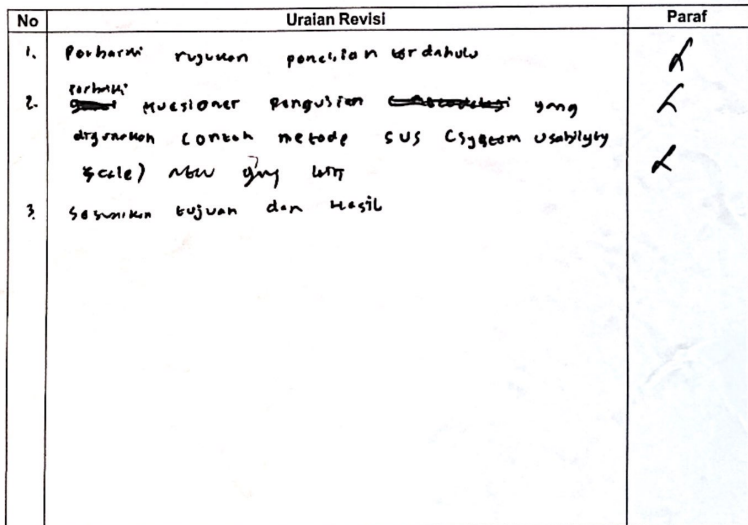 No Uraian Revisi Paraf
1. Perbarui rujukan penelitian terdahulu
perbaiki
2. kuesioner pengujian yang
digunakan contoh metode SUS (System Usability
Scale) atau yang lain
3. Sesuaikan tujuan dan Hasil